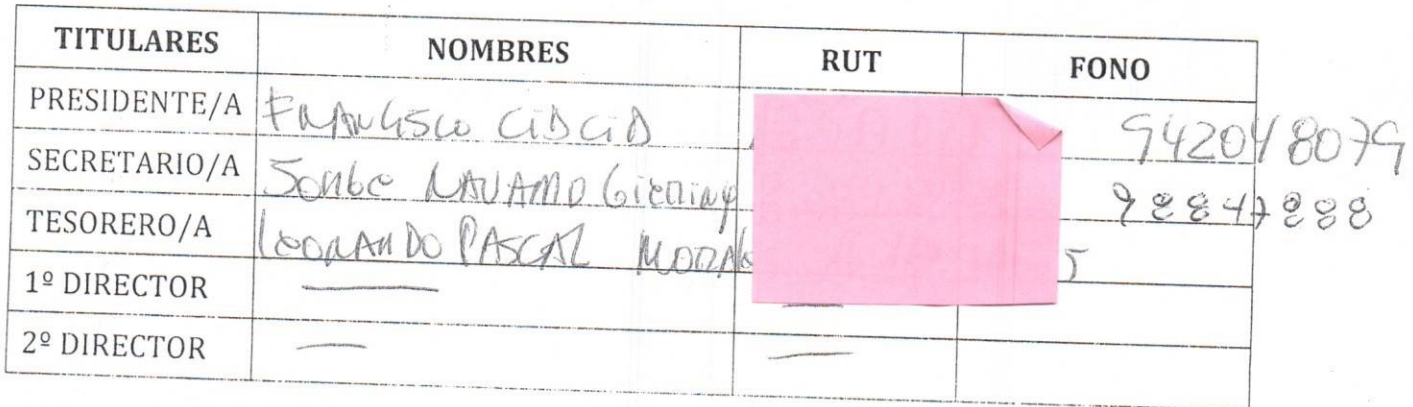 TITULARES NOMBRES RUT FONO
PRESIDENTE/A FRANCISCO CID CID 942048079
SECRETARIO/A NAVARRO 98847888
TESORERO/A LEONARDO PASCAL 5
1º DIRECTOR — —
2º DIRECTOR — —